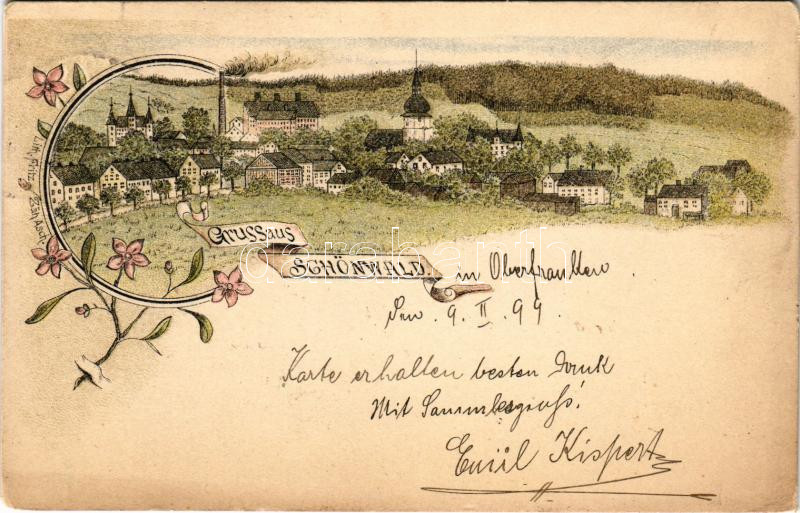 GRUSS AUS
SCHÖNWALD. in Oberfranken.
Den 9. II. 99.
Karte erhalten besten Dank
Mit Sammlergruß!
Emil Kispert
darabanth